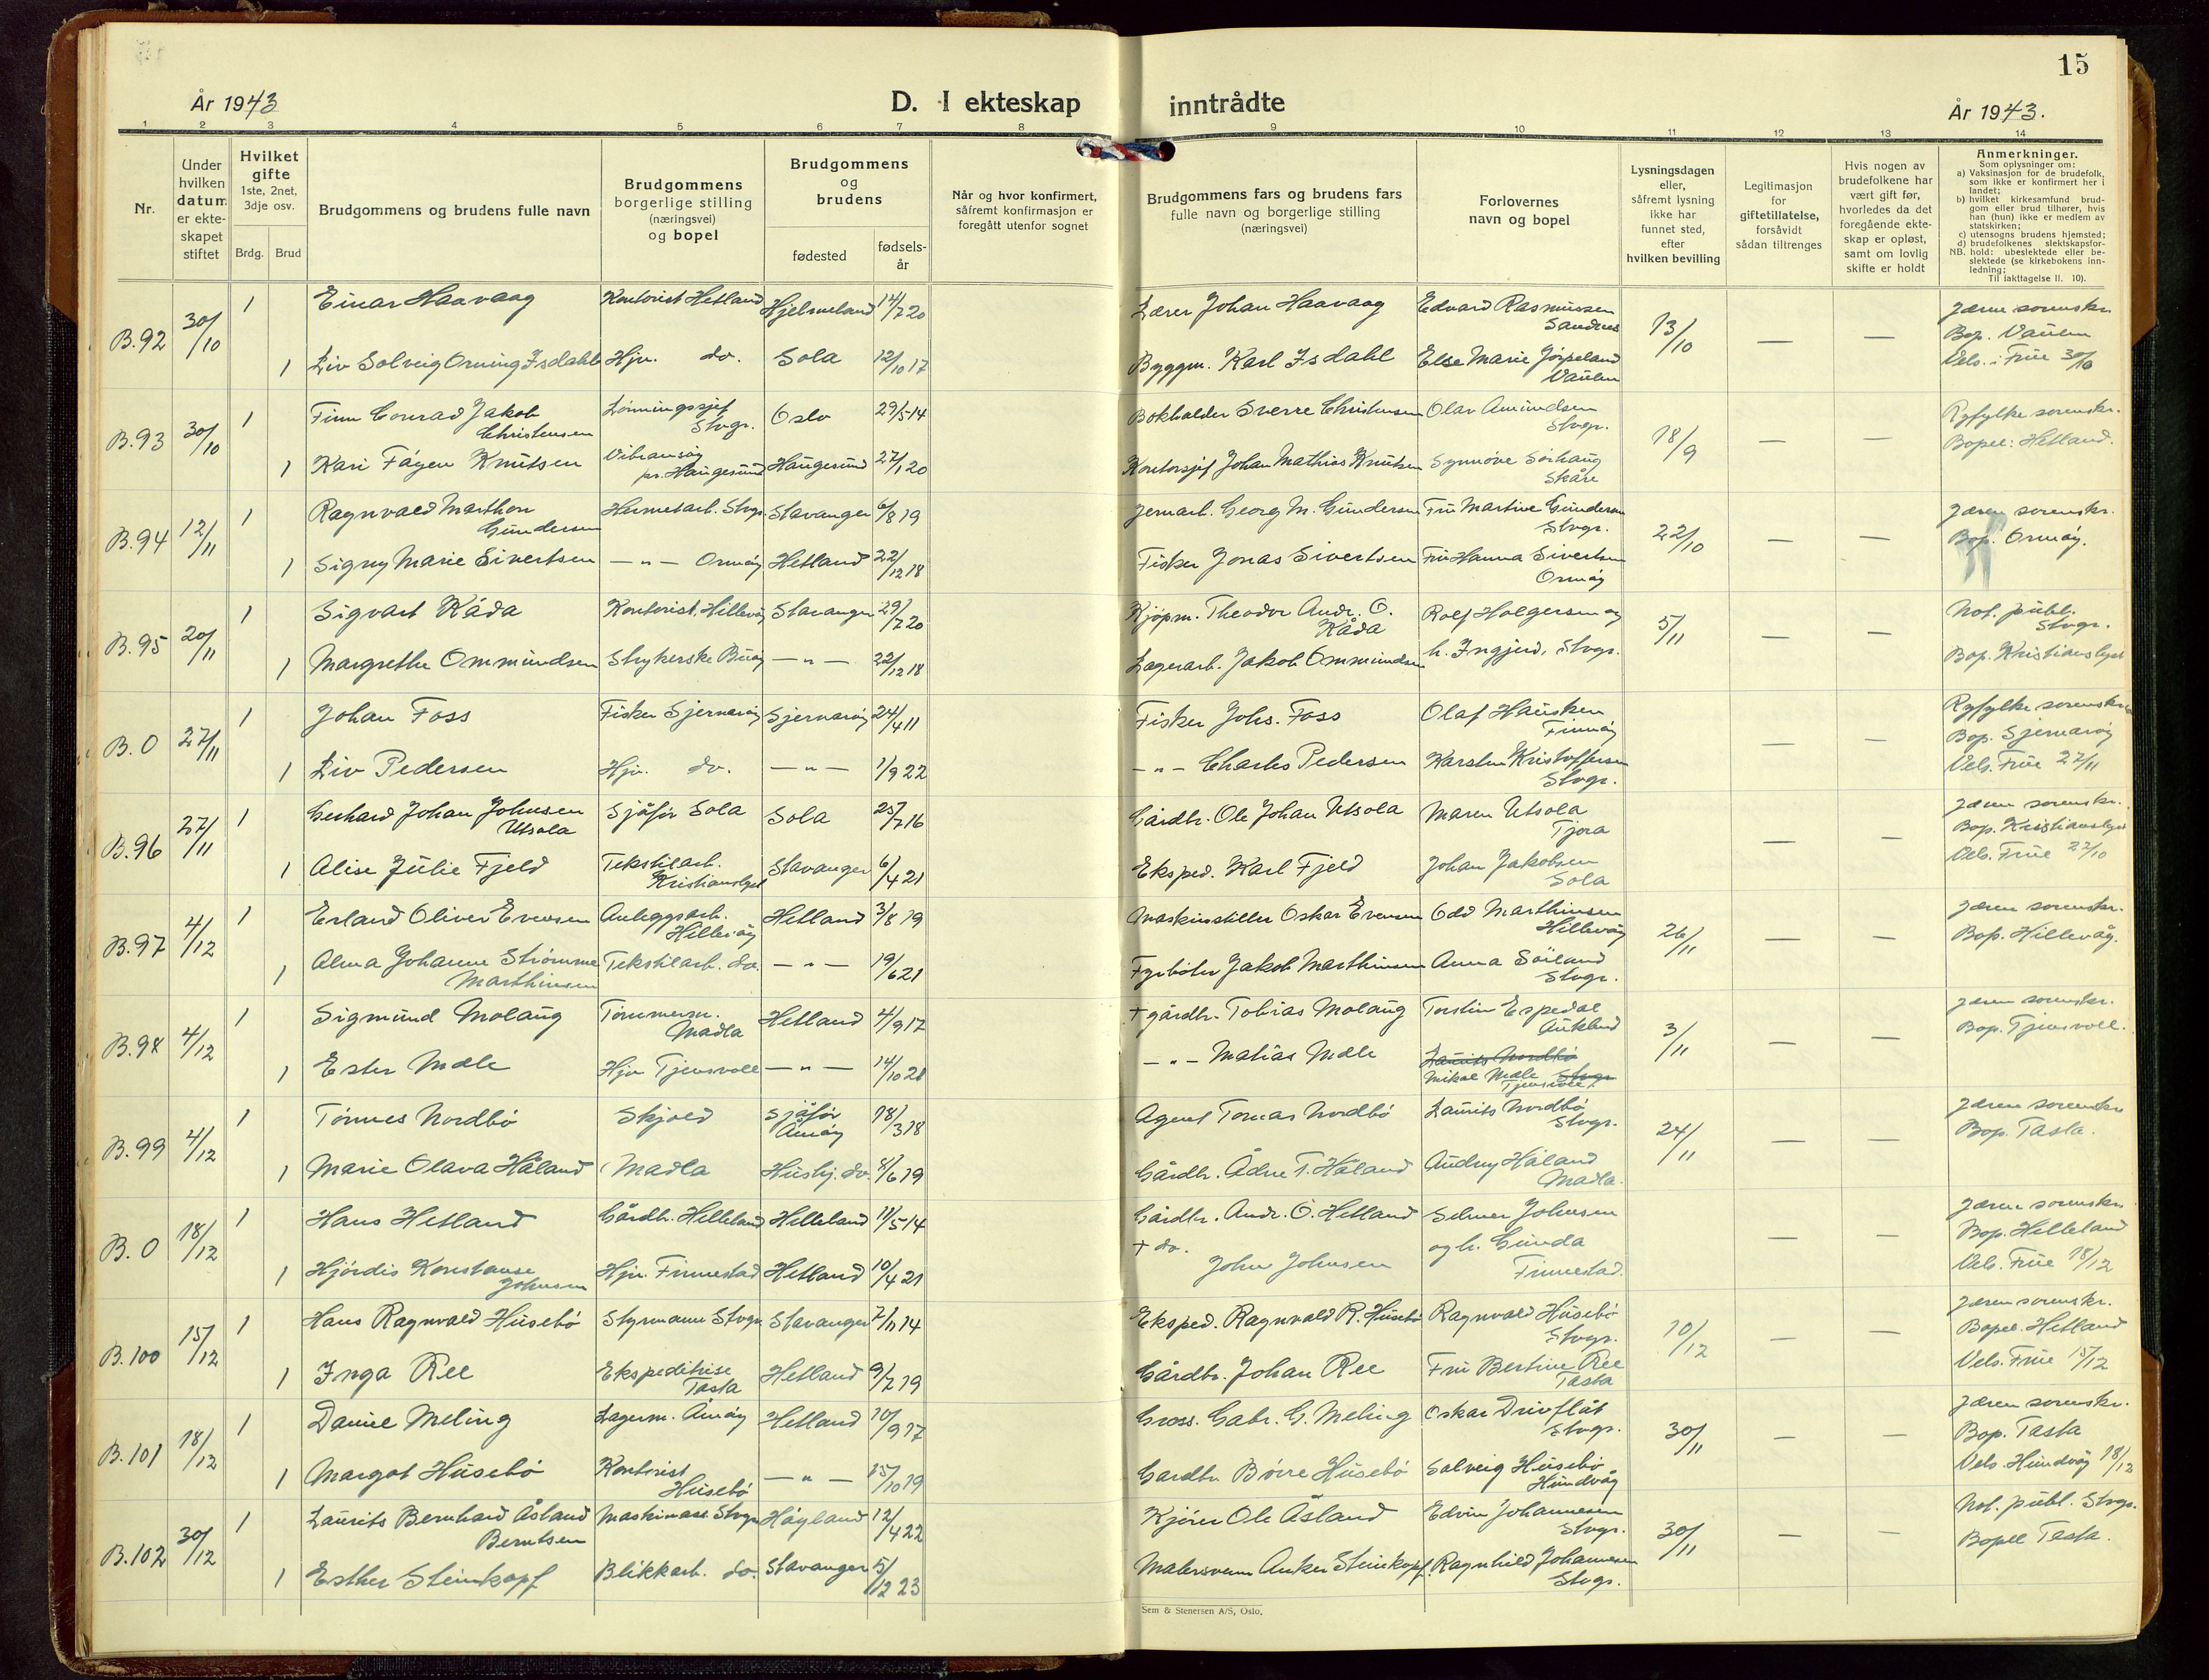 15
År 1943
D. I ekteskap inntrådte
År 1943.
1 2 3 4 5 6 7 8 9 10 11 12 13 14
Nr.
Under hvilken datum er ekteskapet stiftet
Hvilket gifte
1ste, 2net, 3dje osv.
Brdg. Brud
Brudgommens og brudens fulle navn
Brudgommens borgerlige stilling (næringsvei) og bopel
Brudgommens og brudens
fødested
fødselsår
Når og hvor konfirmert, såfremt konfirmasjon er foregått utenfor sognet
Brudgommens fars og brudens fars fulle navn og borgerlige stilling (næringsvei)
Forlovernes navn og bopel
Lysningsdagen eller, såfremt lysning ikke har funnet sted, efter hvilken bevilling
Legitimasjon for giftetillatelse, forsåvidt sådan tiltrenges
Hvis nogen av brudefolkene har vært gift før, hvorledes da det foregående ekteskap er opløst, samt om lovlig skifte er holdt
Anmerkninger.
Som oplysninger om:
a) Vaksinasjon for de brudefolk, som ikke er konfirmert her i landet;
b) hvilket kirkesamfund brudgom eller brud tilhører, hvis han (hun) ikke er medlem av statskirken;
c) utensogns brudens hjemsted;
d) brudefolkenes slektskapsforhold: ubeslektede eller beslektede (se kirkebokens innledning;
NB. Til iakttagelse II. 10).
B.92 30/10 1 Einar Haavaag Kontorist Hetland Hjelmeland 14/7 20 Lærer Johan Haavaag Edvard Rasmussen Sandnes 13/10 — — Jæren sorenskr.
Bop. Vaulen
1 Liv Solveig Orning Isdahl Hjv. do. Sola 12/10 17 Byggm. Karl Isdahl Else Marie Jørpeland Vaulen Vels. i Frue 30/10
B.93 30/10 1 Finn Conrad Jakob Christensen Lønningssjef Stvgr. Oslo 29/5 14 Bokholder Sverre Christensen Olav Amundsen Stvgr. 18/9 — — Ryfylke sorenskr.
Bopel: Hetland.
1 Kari Fayen Knutsen Vibransøy pr. Haugesund Haugesund 27/1 20 Kontorsjef Johan Mathias Knutsen Synnøve Sørhaug Skåre
B.94 12/11 1 Ragnvald Marthon Gundersen Hermetarb. Stvgr. Stavanger 6/8 19 Jernarb. Georg M. Gundersen Fru Martine Gundersen Stvgr. 22/10 — — Jæren sorenskr.
Bop. Ormøy.
1 Signy Marie Sivertsen — " — Ormøy Hetland 22/12 18 Fisker Jonas Sivertsen Fru Hanna Sivertsen Ormøy
B.95 20/11 1 Sigvart Kåda Kontorist. Hillevåg Stavanger 29/7 20 Kjøpm. Theodor Andr. O. Kåda Rolf Holgersen og 5/11 — — Not. publ. Stvgr.
1 Margrethe Ommundsen Strykerske Buøy — " — 22/12 18 Lagerarb. Jakob Ommundsen h. Ingjerd, Stvgr. Bop. Kristianslyst
B. 0 27/11 1 Johan Foss Fisker Sjernarøy Sjernarøy 24/4 11 Fisker Johs. Foss Olaf Hausken Finnøy — — Ryfylke sorenskr.
Bop. Sjernarøy
1 Liv Pedersen Hjv. do. — " — 1/9 22 — " — Charles Pedersen Karsten Kristoffersen Stvgr. Vels. Frue 27/11
B.96 27/11 1 Gerhard Johan Johnsen Utsola Sjåfør Sola Sola 25/7 16 Gårdbr. Ole Johan Utsola Maren Utsola Tjora — — Jæren sorenskr.
Bop. Kristianslyst
1 Alise Julie Fjeld Tekstilarb. Kristianslyst Stavanger 6/4 21 Eksped. Karl Fjeld Johan Jakobsen Sola Vels. Frue 22/10
B.97 4/12 1 Erland Oliver Evensen Anleggsarb. Hillevåg Hetland 3/8 19 Maskinstiller Oskar Evensen Odd Marthinsen Hillevåg 26/11 — — Jæren sorenskr.
Bop. Hillevåg.
1 Alma Johanne Strømme Marthinsen Tekstilarb. do. — " — 19/6 21 Fyrbøter Jakob Marthinsen Anna Søiland Stvgr.
B.98 4/12 1 Sigmund Molaug Tømmerm. Madla Hetland 4/9 17 + gårdbr. Tobias Molaug Torstein Espedal Aukland 3/11 — — Jæren sorenskr.
Bop. Tjensvoll.
1 Ester Mæle Hjv. Tjensvoll — " — 14/10 21 — " — Matias Mæle Laurits Nordbø Stvgr. Mikal Mæle Tjensvoll.
B.99 4/12 1 Tønnes Nordbø Skjold Sjåfør Åmøy 18/3 18 Agent Tomas Nordbø Laurits Nordbø Stvgr. 24/11 — — Jæren sorenskr.
Bop. Tasta.
1 Marie Olava Håland Madla Husbj. do. 8/6 19 Gårdbr. Ådne T. Håland Audny Håland Madla.
B. 0 18/12 1 Hans Hetland Gårdbr. Helleland Helleland 11/5 14 Gårdbr. Andr. O. Hetland Selmer Johnsen — — Jæren sorenskr.
Bop. Helleland
1 Hjørdis Konstanse Johnsen Hjv. Finnestad Hetland 10/4 21 + do. John Johnsen og h. Gunda Finnestad. Vels. Frue 18/12
B.100 15/12 1 Hans Ragnvald Husebø Styrmann Stvgr. Stavanger 7/11 14 Eksped. Ragnvald R. Husebø Ragnvald Husebø Stvgr. 10/12 — — Jæren sorenskr.
Bopel. Hetland
1 Inga Ree Ekspeditrise Tasta Hetland 9/7 19 Gårdbr. Johan Ree Fru Bertine Ree Tasta Vels. Frue 15/12
B.101 18/12 1 Daniel Meling Lagerm. Åmøy Hetland 10/9 17 Gross. Gabr. G. Meling Oskar Drivflåt Stvgr. 30/11 — — Jæren sorenskr.
Bop. Tasta
1 Margot Husebø Kontorist Husebø — " — 15/10 19 Gardbr. Børre Husebø Solveig Husebø Hundvåg Vels. Hundvåg 18/12
B.102 30/12 1 Laurits Bernhard Åsland Berntsen Maskinass. Stvgr. Høyland 12/4 22 Kjører Ole Åsland Edvin Johannesen Stvgr. 30/11 — — Not. publ. Stvgr.
Bopel Tasta.
1 Esther Steinkopf Blikkarb. do. Stavanger 5/12 23 Malersvenn Anker Steinkopf. Ragnhild Johannesen Stvgr.
Sem & Stenersen A/S, Oslo.